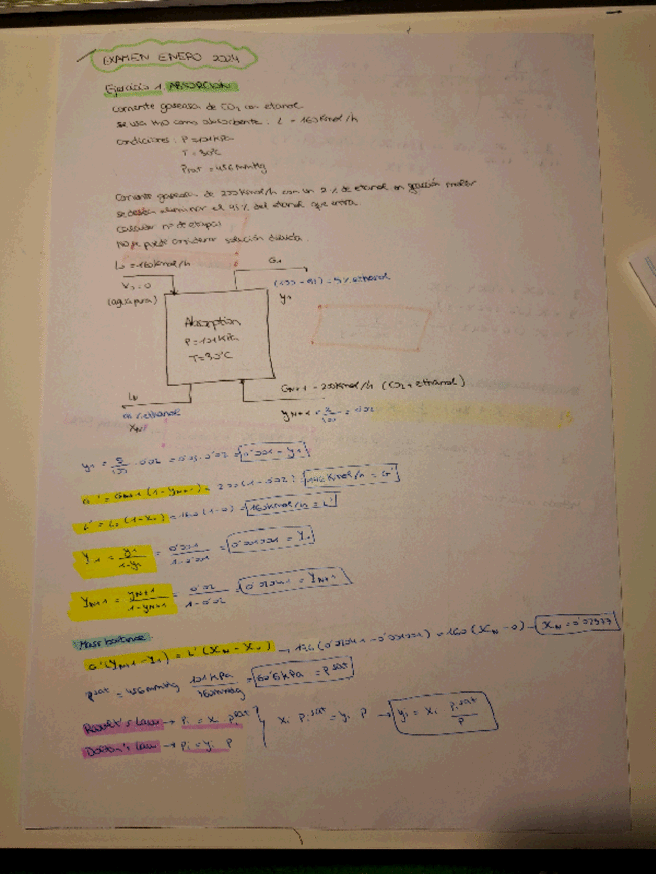 EXAMEN ENERO 2024
Ejercicio 1. ABSORCION
Corriente gaseosa de CO2 con etanol
se usa H2O como absorbente. L = 160 Kmol/h
condiciones: P = 101 KPa
T = 30°C
Psat = 456 mmHg
Corriente gaseosa de 200 Kmol/h con un 2% de etanol en fracción molar
se desea eliminar el 95% del etanol que entra.
Calcular nº de etapas
No se puede considerar solución diluida.
L0 = 160 Kmol/h
G1
X0 = 0
(100 - 95) = 5% ethanol
(agua pura)
y1
Absorption
P = 101 KPa
T = 30°C
LN
GN+1 = 200 Kmol/h (CO2 + ethanol)
ethanol
yN+1 = 2/100 = 0'02
XN
y1 = 5/100 · 0'02 = 0'05 · 0'02 = 0'001 = y1
G' = GN+1 (1 - yN+1) = 200 (1 - 0'02) = 196 Kmol/h = G'
L' = L0 (1 - X0) = 160 (1 - 0) = 160 Kmol/h = L'
Y1 = y1/(1-y1) = 0'001/(1-0'001) = 0'001001 = Y1
YN+1 = yN+1/(1-yN+1) = 0'02/(1-0'02) = 0'02041 = YN+1
Mass balance
G' (YN+1 - Y1) = L' (XN - X0) → 196 (0'02041 - 0'001001) = 160 (XN - 0) → XN = 0'02377
Psat = 456 mmHg 101 KPa/760 mmHg = 60'6 KPa = Psat
Raoult's Law → Pi = xi Psat } xi Pi sat = yi P → yi = xi Pi sat/P
Dalton's Law → Pi = yi P